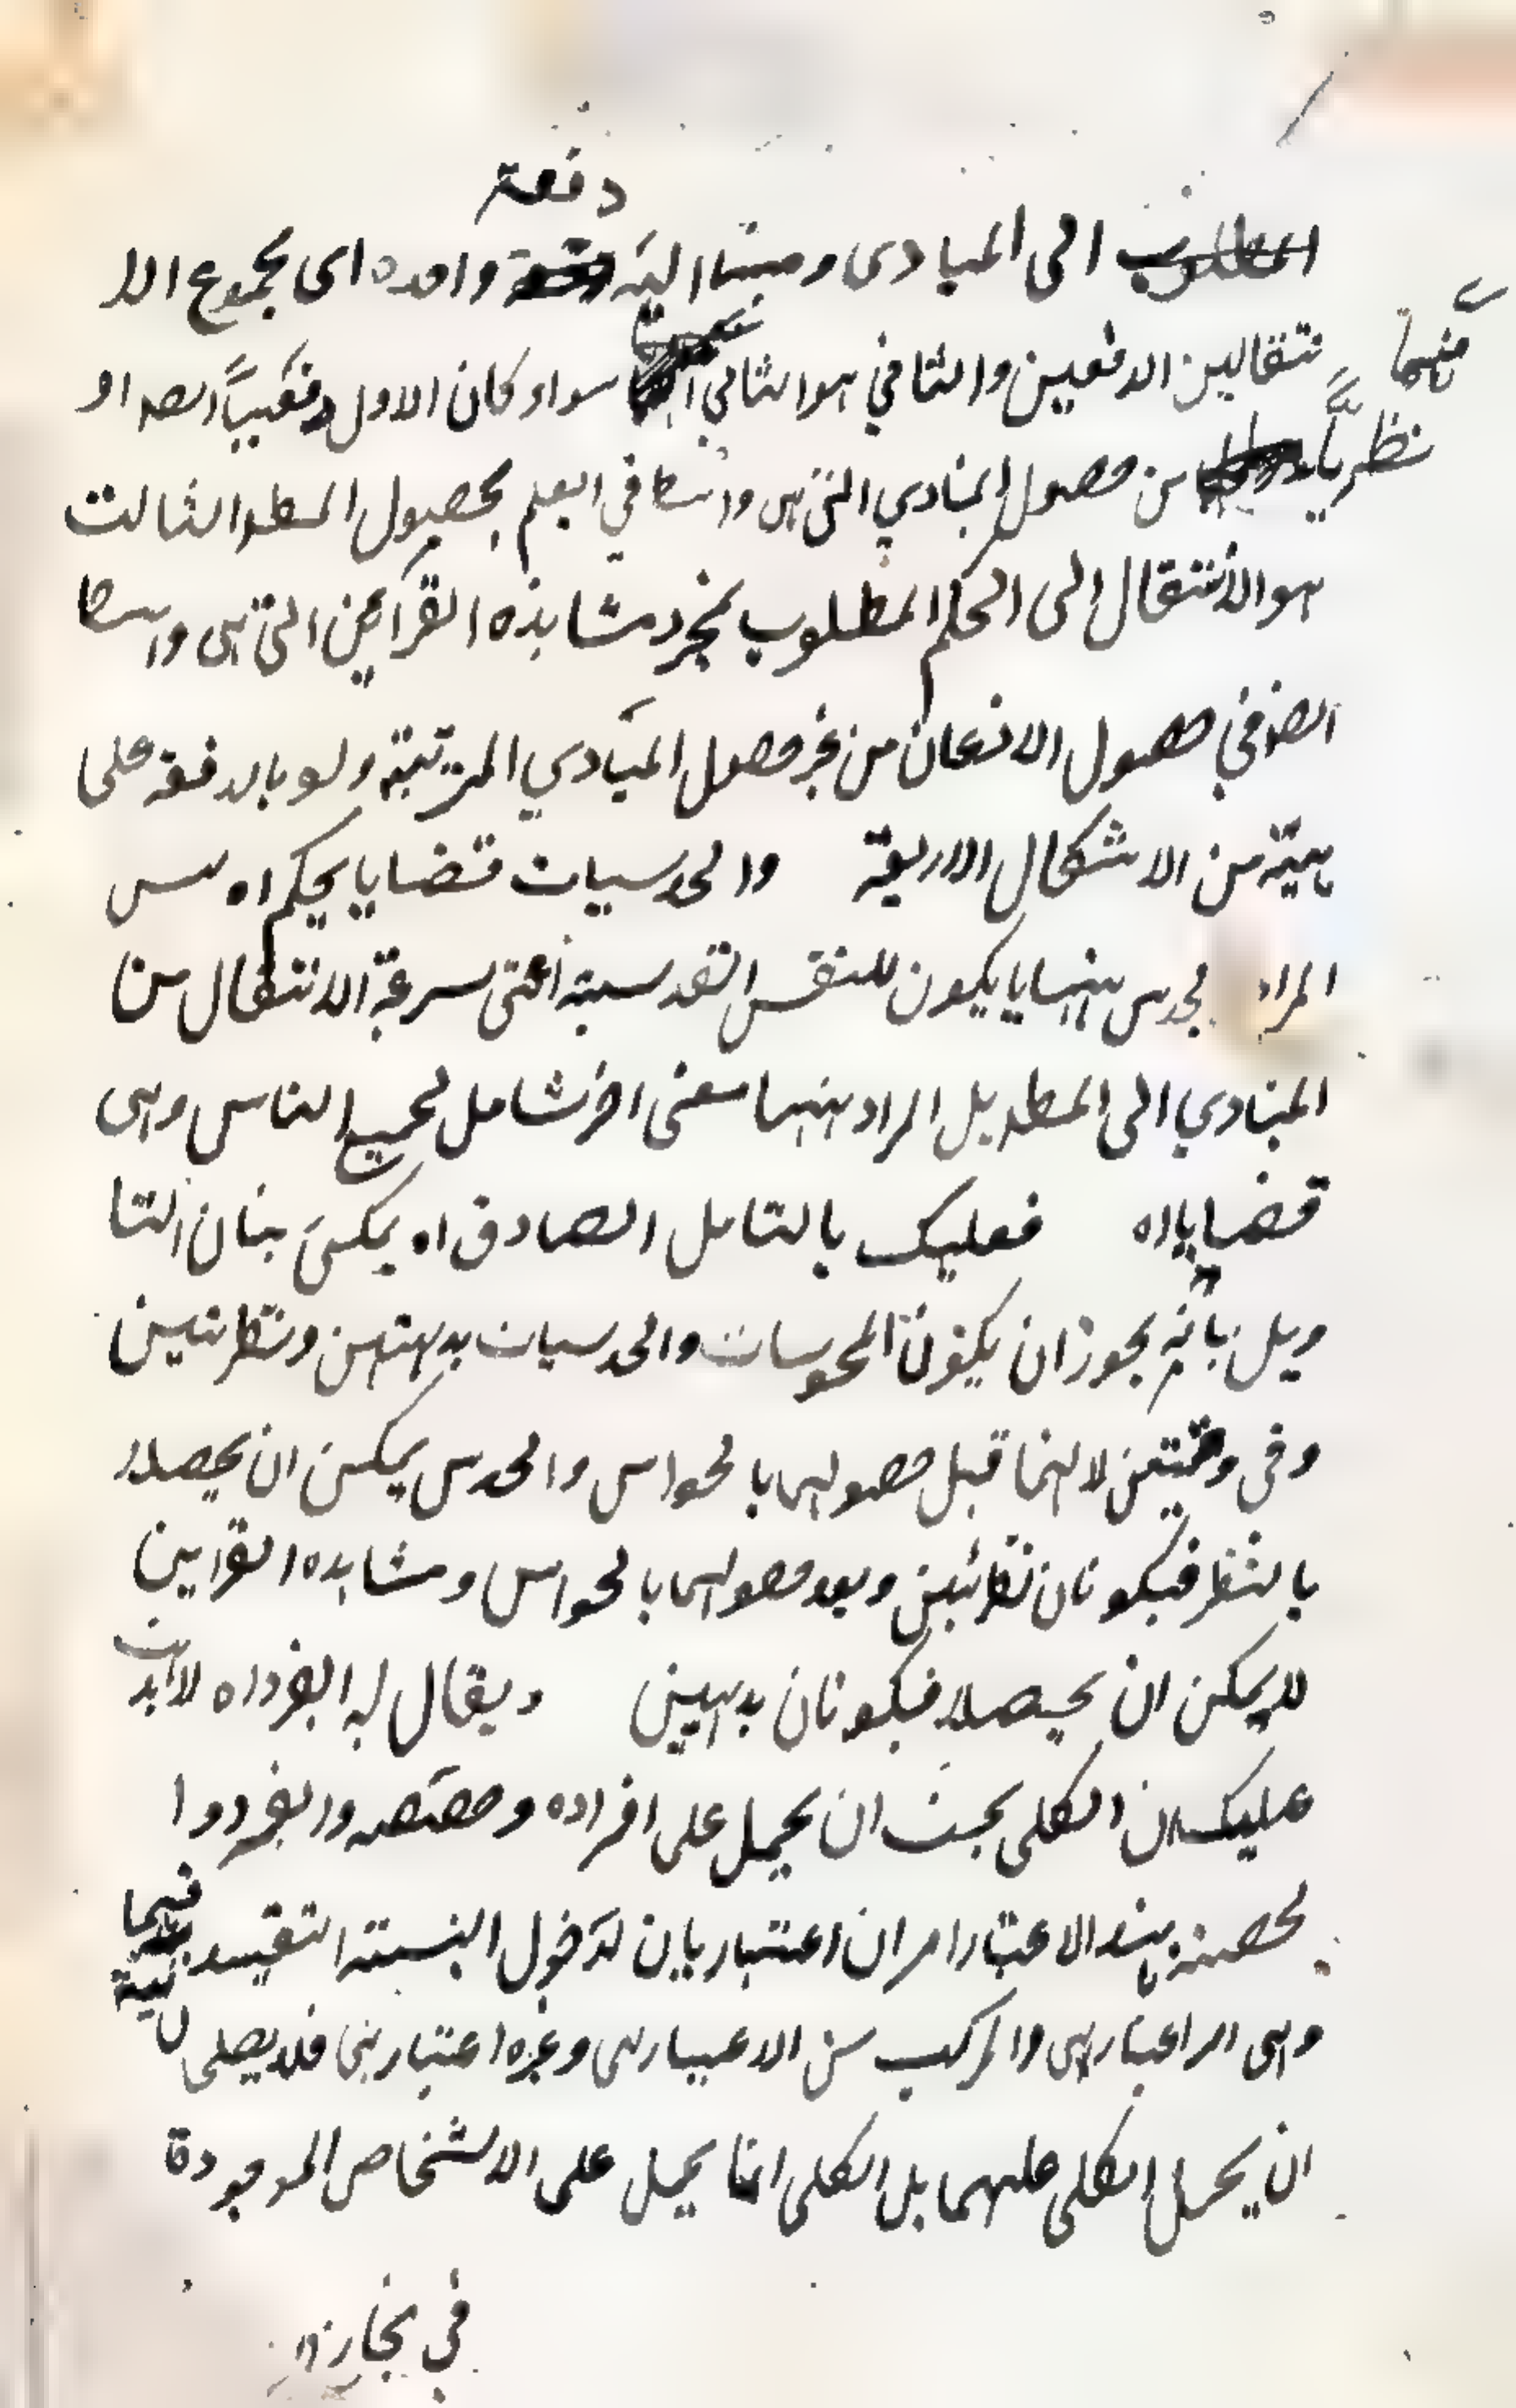 دفعة
المطلوب الى المبادى ومنها اليه دفعة واحده اى مجموع الا
نتقالين الدفعيين والثاني هو الثاني سواء كان الاول دفعيا ايضا او
منهما
نظريا من حصول المبادي التى هى وسائط في العلم بحصول المطلو الثالث
هو الانتقال الى الحكم المطلوب بمجرد مشاهدة القرآئن التى هى وسائط
ايضا في حصول الاذعان من غير حصول المبادي المرتبة ولو بالدفعة على
هيئة من الاشكال الاربعة والحدسيات قضايا يحكم اه ليس
المراد بحدس ههنا ما يكون للنفس القدسية اعنى سرعة الانتقال من
المبادي الى المطلو بل المراد ههنا معنى اخر شامل لجميع الناس وهى
قضايا اه فعليك بالتامل الصادق اه يمكن بيان التا
ويل بانه يجوز ان يكون المحسوسات والحدسيات بديهيتين ونظريتين
وفى وقتين لانهما قبل حصولهما بالحواس والحدس يمكن ان يحصلا
بالنظر فيكونان نظريين وبعد حصولهما بالحواس ومشاهده القراين
لا يمكن ان يحصلا فيكونان بديهيين ويقال له الفرد اه لا يذهب
عليك ان الكلى يجب ان يحمل على افراده وحصصه والفرد وا
لحصة بهذا الاعتبار امران اعتباريان لدخول النسبة التقييدية فيهما
وهى امر اعتبارى والمركب من الاعتبارى وغيره اعتبارى فلا يصلحان
ان يحمل الكلى عليهما بل الكلى انما يحمل على الاشخاص الموجودة
في